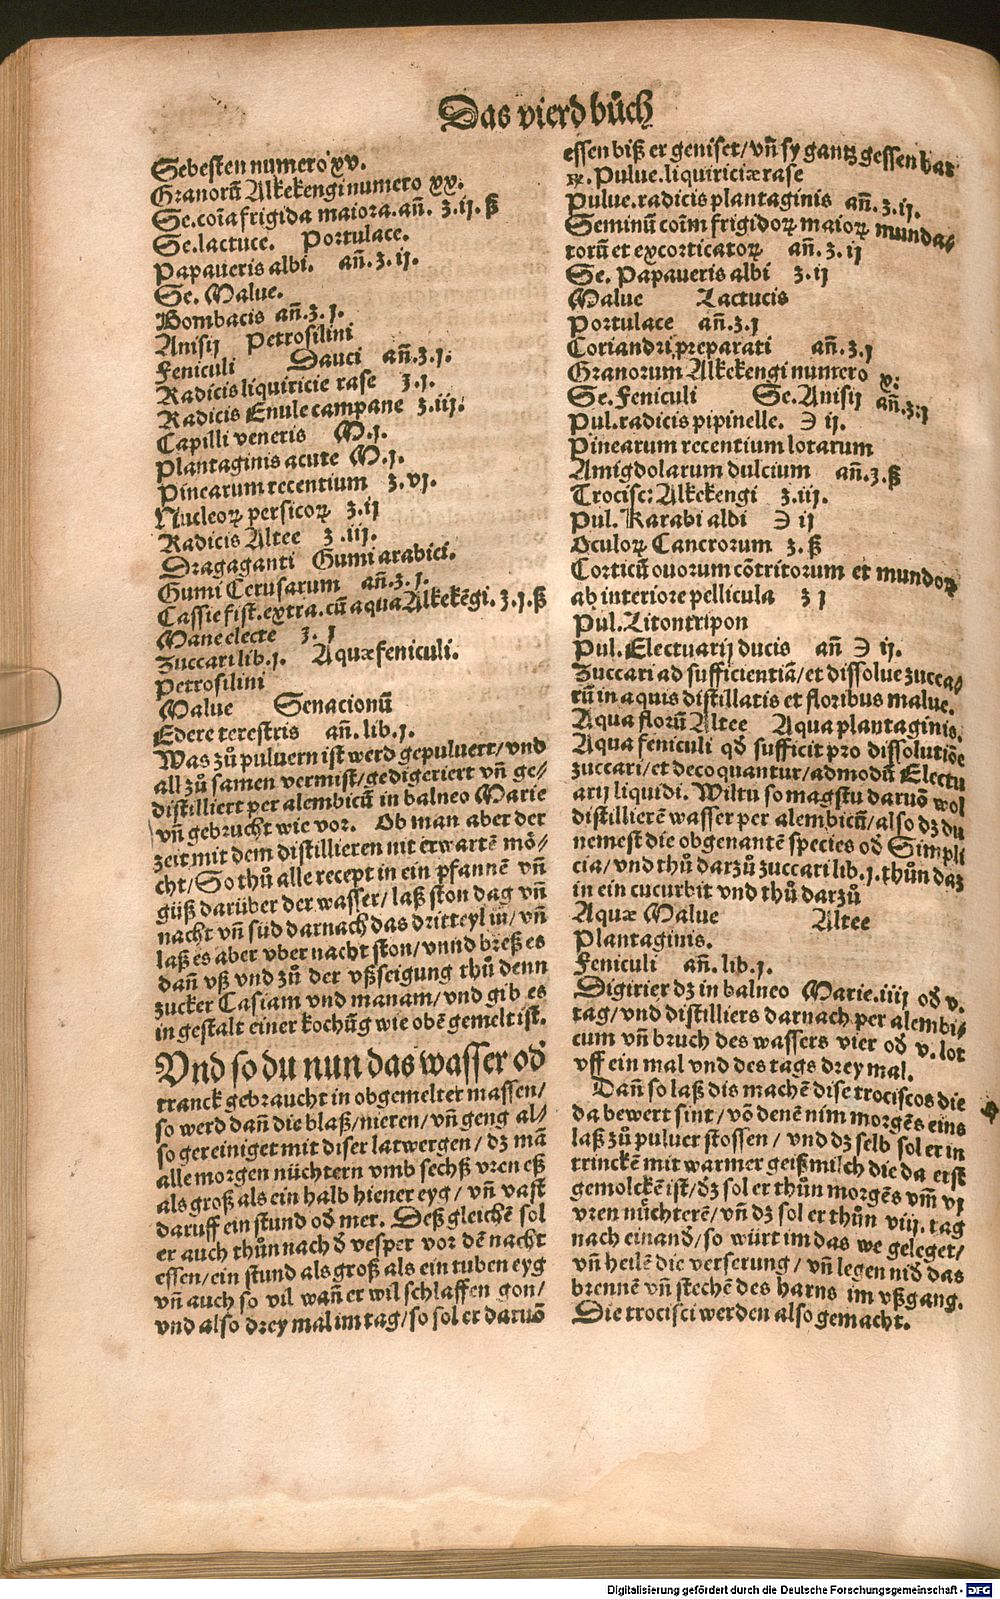 Das vierd bůch
Sebesten numero xv.
Granorū Alkekengi numero xx.
Se.coīa frigida maiora.añ. ʒ.ij. ß
Se.lactuce. Portulace.
Papaueris albi. añ.ʒ.ij.
Se. Malue.
Bombacis añ.ʒ.j.
Anisij Petrosilini
Feniculi Dauci añ.ʒ.j.
Radicis liquiricie rase ʒ.j.
Radicis Enule campane ʒ.iij.
Capilli veneris M.j.
Plantaginis acute M.j.
Pinearum recentium ʒ.vj.
Nucleoꝝ persicoꝝ ʒ.ij
Radicis Altee ʒ.iij.
Dragaganti Gumi arabici.
Gumi Cerusarum añ.ʒ.j.
Cassie fist.extra.cū aqua Alkekēgi.ʒ.j.ß
Mane electe ʒ.j
Zuccari lib.j. Aquæ feniculi.
Petrosilini
Malue Senacionū
Edere terestris añ.lib.j.
Was zů puluern ist werd gepuluert/vnd
all zů samen vermist/gedigeriert vñ ge/
distilliert per alembicū in balneo Marie
vñ gebrucht wie vor. Ob man aber der
zeit mit dem distillieren nit erwartē mö/
cht/So thů alle recept in ein pfannē vñ
güß darüber der wasser/laß ston dag vñ
nacht vñ süd darnach das dritteyl in/vñ
laß es aber vber nacht ston/vnnd breß es
dañ vß vnd zů der vßseigung thů denn
zucker Casiam vnd manam/vnd gib es
in gestalt einer kochūg wie obē gemelt ist.
Vnd so du nun das wasser od̄
tranck gebraucht in obgemelter massen/
so werd dañ die blaß/nieren/vñ geng al/
so gereiniget mit diser latwergen/dz mā
alle morgen nüchtern vmb sechß vren eß
als groß als ein halb hiener eyg/vñ vast
daruff ein stund od̄ mer. Deß gleichē sol
er auch thůn nach d̄ vesper vor dē nacht
essen/ein stund als groß als ein tuben eyg
vñ auch so vil wañ er wil schlaffen gon/
vnd also drey mal im tag/so sol er daruō
essen biß er geniset/vñ sy gantz gessen hat
℞.Pulue.liquiriciæ rase
Pulue.radicis plantaginis añ.ʒ.ij.
Seminū coīm frigidoꝝ maioꝝ munda/
torū et excorticatoꝝ añ.ʒ.ij
Se. Papaueris albi ʒ.ij
Malue Lactucis
Portulace añ.ʒ.j
Coriandri preparati añ.ʒ.j
Granorum Alkekengi numero x.
Se.Feniculi Se.Anisij añ.ʒ.j
Pul.radicis pipinelle. ℈ ij.
Pinearum recentium lotarum
Amigdolarum dulcium añ.ʒ.ß
Trocisc:Alkekengi ʒ.iij.
Pul.Karabi albi ℈ ij
Oculoꝝ Cancrorum ʒ.ß
Corticū ouorum cōtritorum et mundoꝝ
ab interiore pellicula ʒ j
Pul.Litontripon
Pul.Electuarij ducis añ ℈ ij.
Zuccari ad sufficientiā/et dissolue zucca/
rū in aquis distillatis et floribus malue.
Aqua florū Altee Aqua plantaginis.
Aqua feniculi qd̄ sufficit pro dissolutiōe
zuccari/et decoquantur/admodū Electu
arij liquidi. Wiltu so magstu daruō wol
distillierē wasser per alembicū/also dz du
nemest die obgenantē species od̄ Simpli
cia/vnd thů darzů zuccari lib.j.thůn daz
in ein cucurbit vnd thů darzů
Aquæ Malue Altee
Plantaginis.
Feniculi añ.lib.j.
Digirier dz in balneo Marie.iiij od̄ v.
tag/vnd distilliers darnach per alembi/
cum vñ bruch des wassers vier od̄ v.lot
vff ein mal vnd des tags drey mal.
Dañ so laß dis machē dise trociscos die
da bewert sint/vō denē nim morgēs eins
laß zů puluer stossen/vnd dz selb sol er in
trinckē mit warmer geißmilch die da erst
gemolckē ist/dz sol er thůn morgēs vm̄ vj
vren nůchterē/vñ dz sol er thůn viij.tag
nach einand̄/so würt im das we geleget/
vñ heilē die verserung/vñ legen nid̄ das
brennē vñ stechē des harns im vßgang.
Die trocisci werden also gemacht.
Digitalisierung gefördert durch die Deutsche Forschungsgemeinschaft - DFG